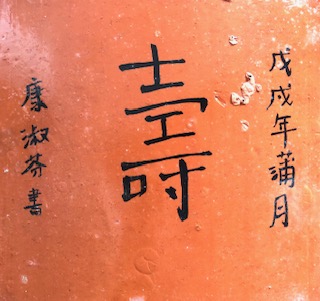 戊戌年蒲月
壽
康淑芬書